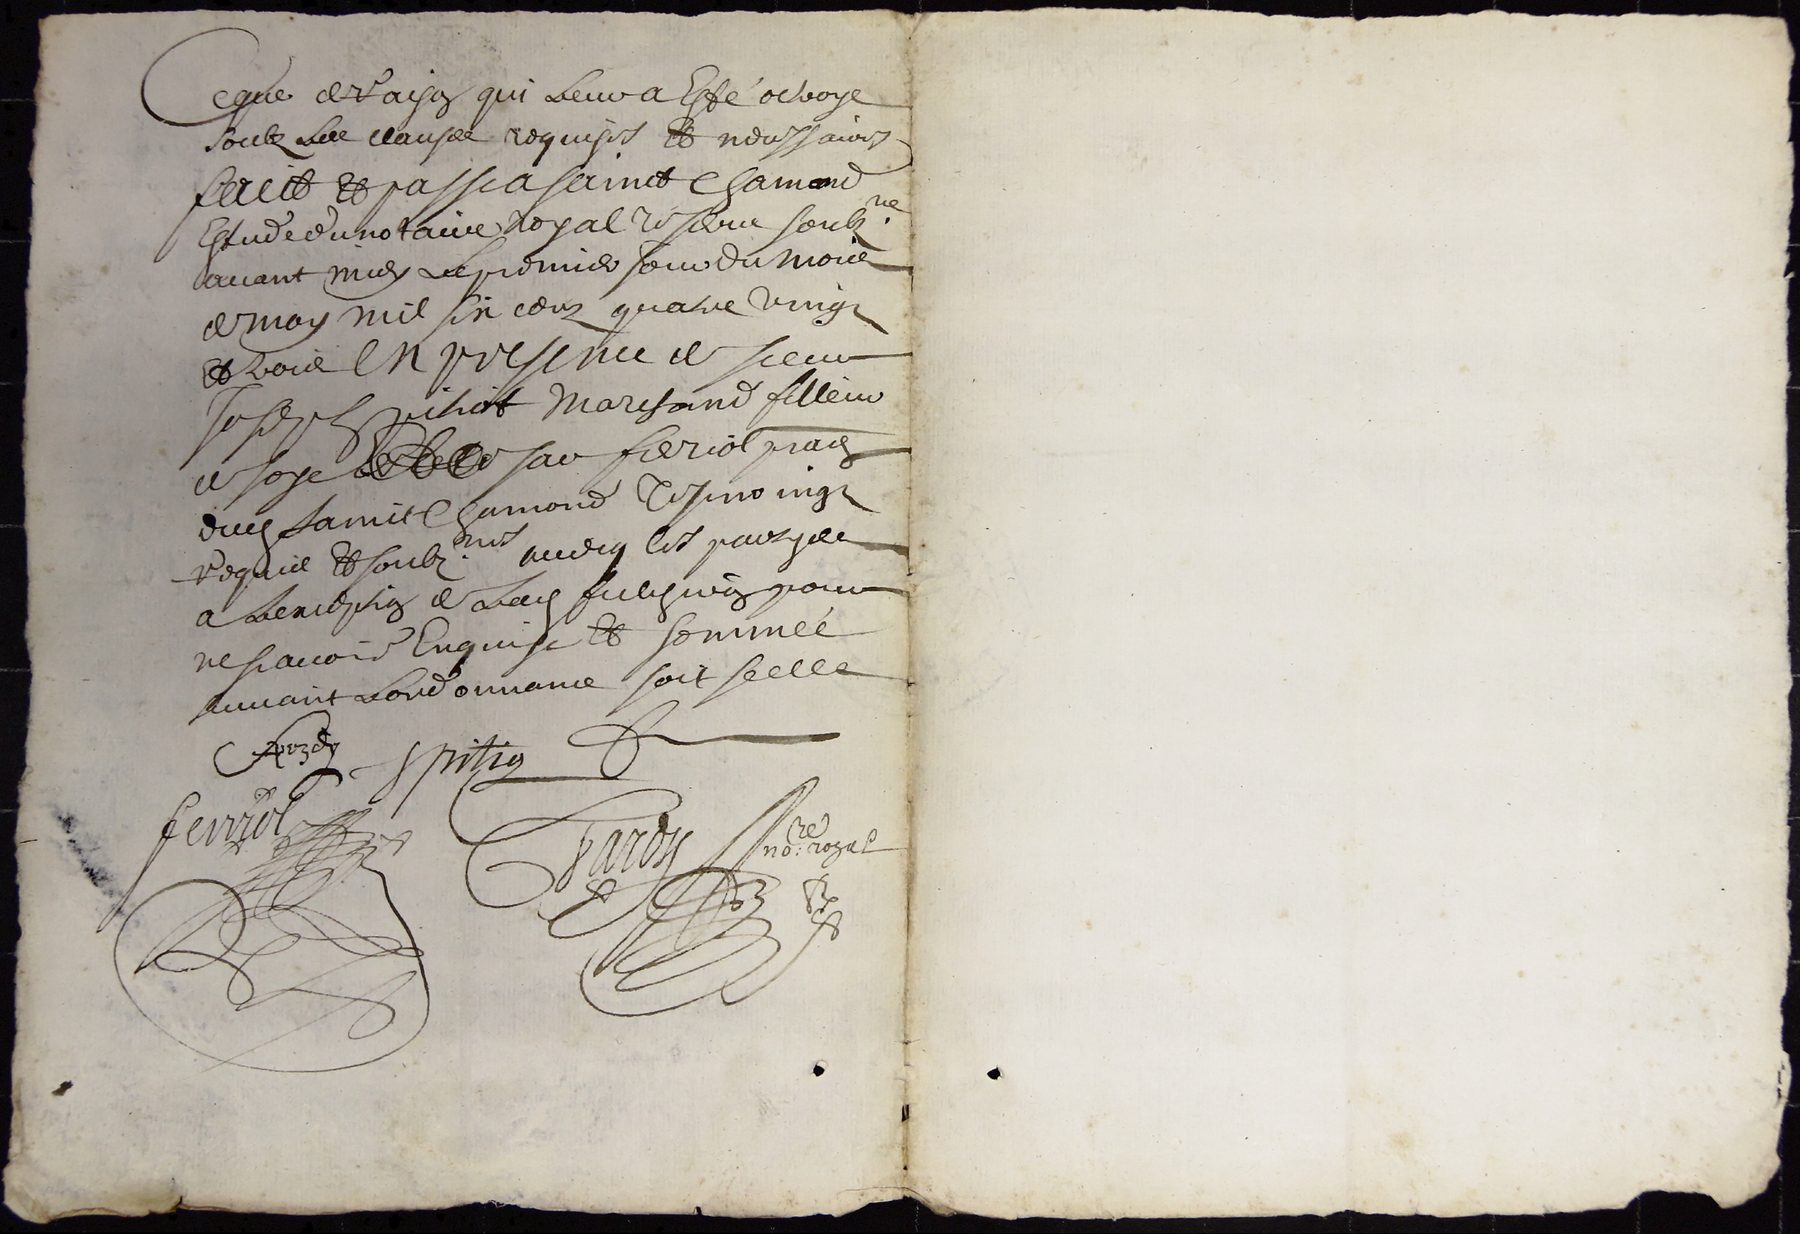 que de raison qui leur a esté octroye
soubz les clauses requises et necessaires
faict et passé a sainct Chamond
estude du notaire royal reservé soubz.ne
avant midy le premier jour du mois
de may mil six cens quatre vingt
et trois en presence de sieur
Joseph pitiot marchand filleur
de soye et sr ferriol prac
dud sainct Chamond tesmoingz
requis et soubz.nes avecq les parties
a l'exception de lad pour
ne scavoir enquise et sommée
suivant l'ordonnance soit scellé
pitiot
ferriol
Tardy no.re royal